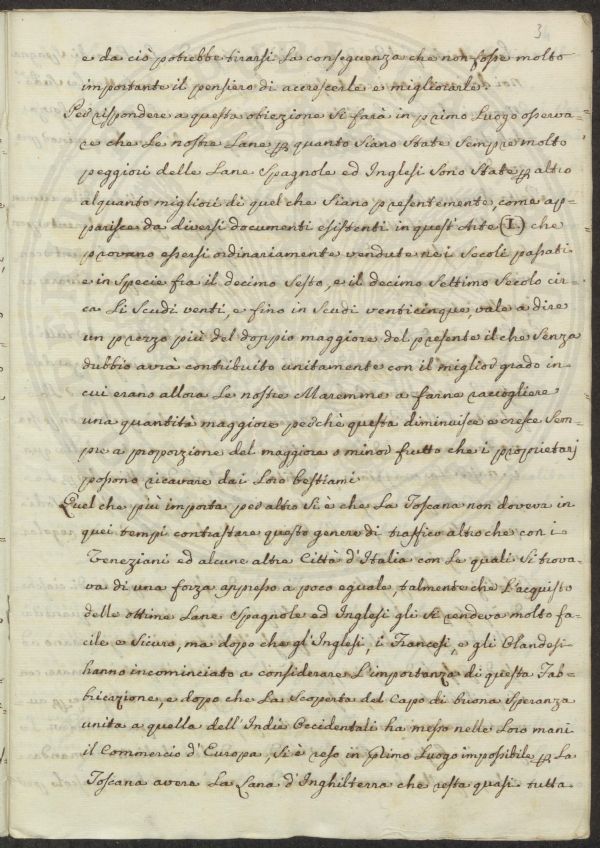 3
e da ciò potrebbe tirarsi la conseguenza che non fosse molto
importante il pensiero di accrescerle e migliorarle.
Per rispondere a questa obiezione si farà in primo Luogo osserva=
re che Le nostre Lane p quanto siano State Sempre molto
peggiori delle Lane Spagnole ed Inglesi Sono State p altro
alquanto migliori di quel che Siano presentemente, come ap=
parisce da diversi documenti esistenti in quest'Arte (I.) che
provano essersi ordinariamente vendute nei Secoli passati
e in Specie fra il decimo Sesto, e il decimo Settimo Secolo cir=
ca Li Scudi venti, e fino in Scudi venticinque vale a dire
un prezzo più del doppio maggiore del presente il che Senza
dubbio avrà contribuito unitamente con il miglior grado in=
cui erano allora Le nostre Maremme a farne raccogliere
una quantità maggiore perchè questa diminuisce e cresce Sem=
pre a proporzione del maggiore o minor frutto che i proprietarj
possono ricavare dai Loro bestiami
Quel che più importa per altro Si è che La Toscana non doveva in
quei tempi contrastare questo genere di traffico altro che con i
Veneziani ed alcune altre Città d'Italia con Le quali Si trova=
va di una forza appresso a poco eguale, talmente che L'acquisto
delle ottime Lane Spagnole ed Inglesi gli Si rendeva molto fa=
cile e Sicuro, ma dopo che gl'Inglesi, i Francesi, e gli Olandesi
hanno incominciato a considerare L'importanza di questa Fab=
bricazione, e dopo che La Scoperta del Capo di buona Speranza
unita a quella dell'Indie Occidentali ha messo nelle Loro mani
il Commercio d'Europa, Si è reso in primo Luogo impossibile p La
Toscana avere La Lana d'Inghilterra che resta quasi tutta